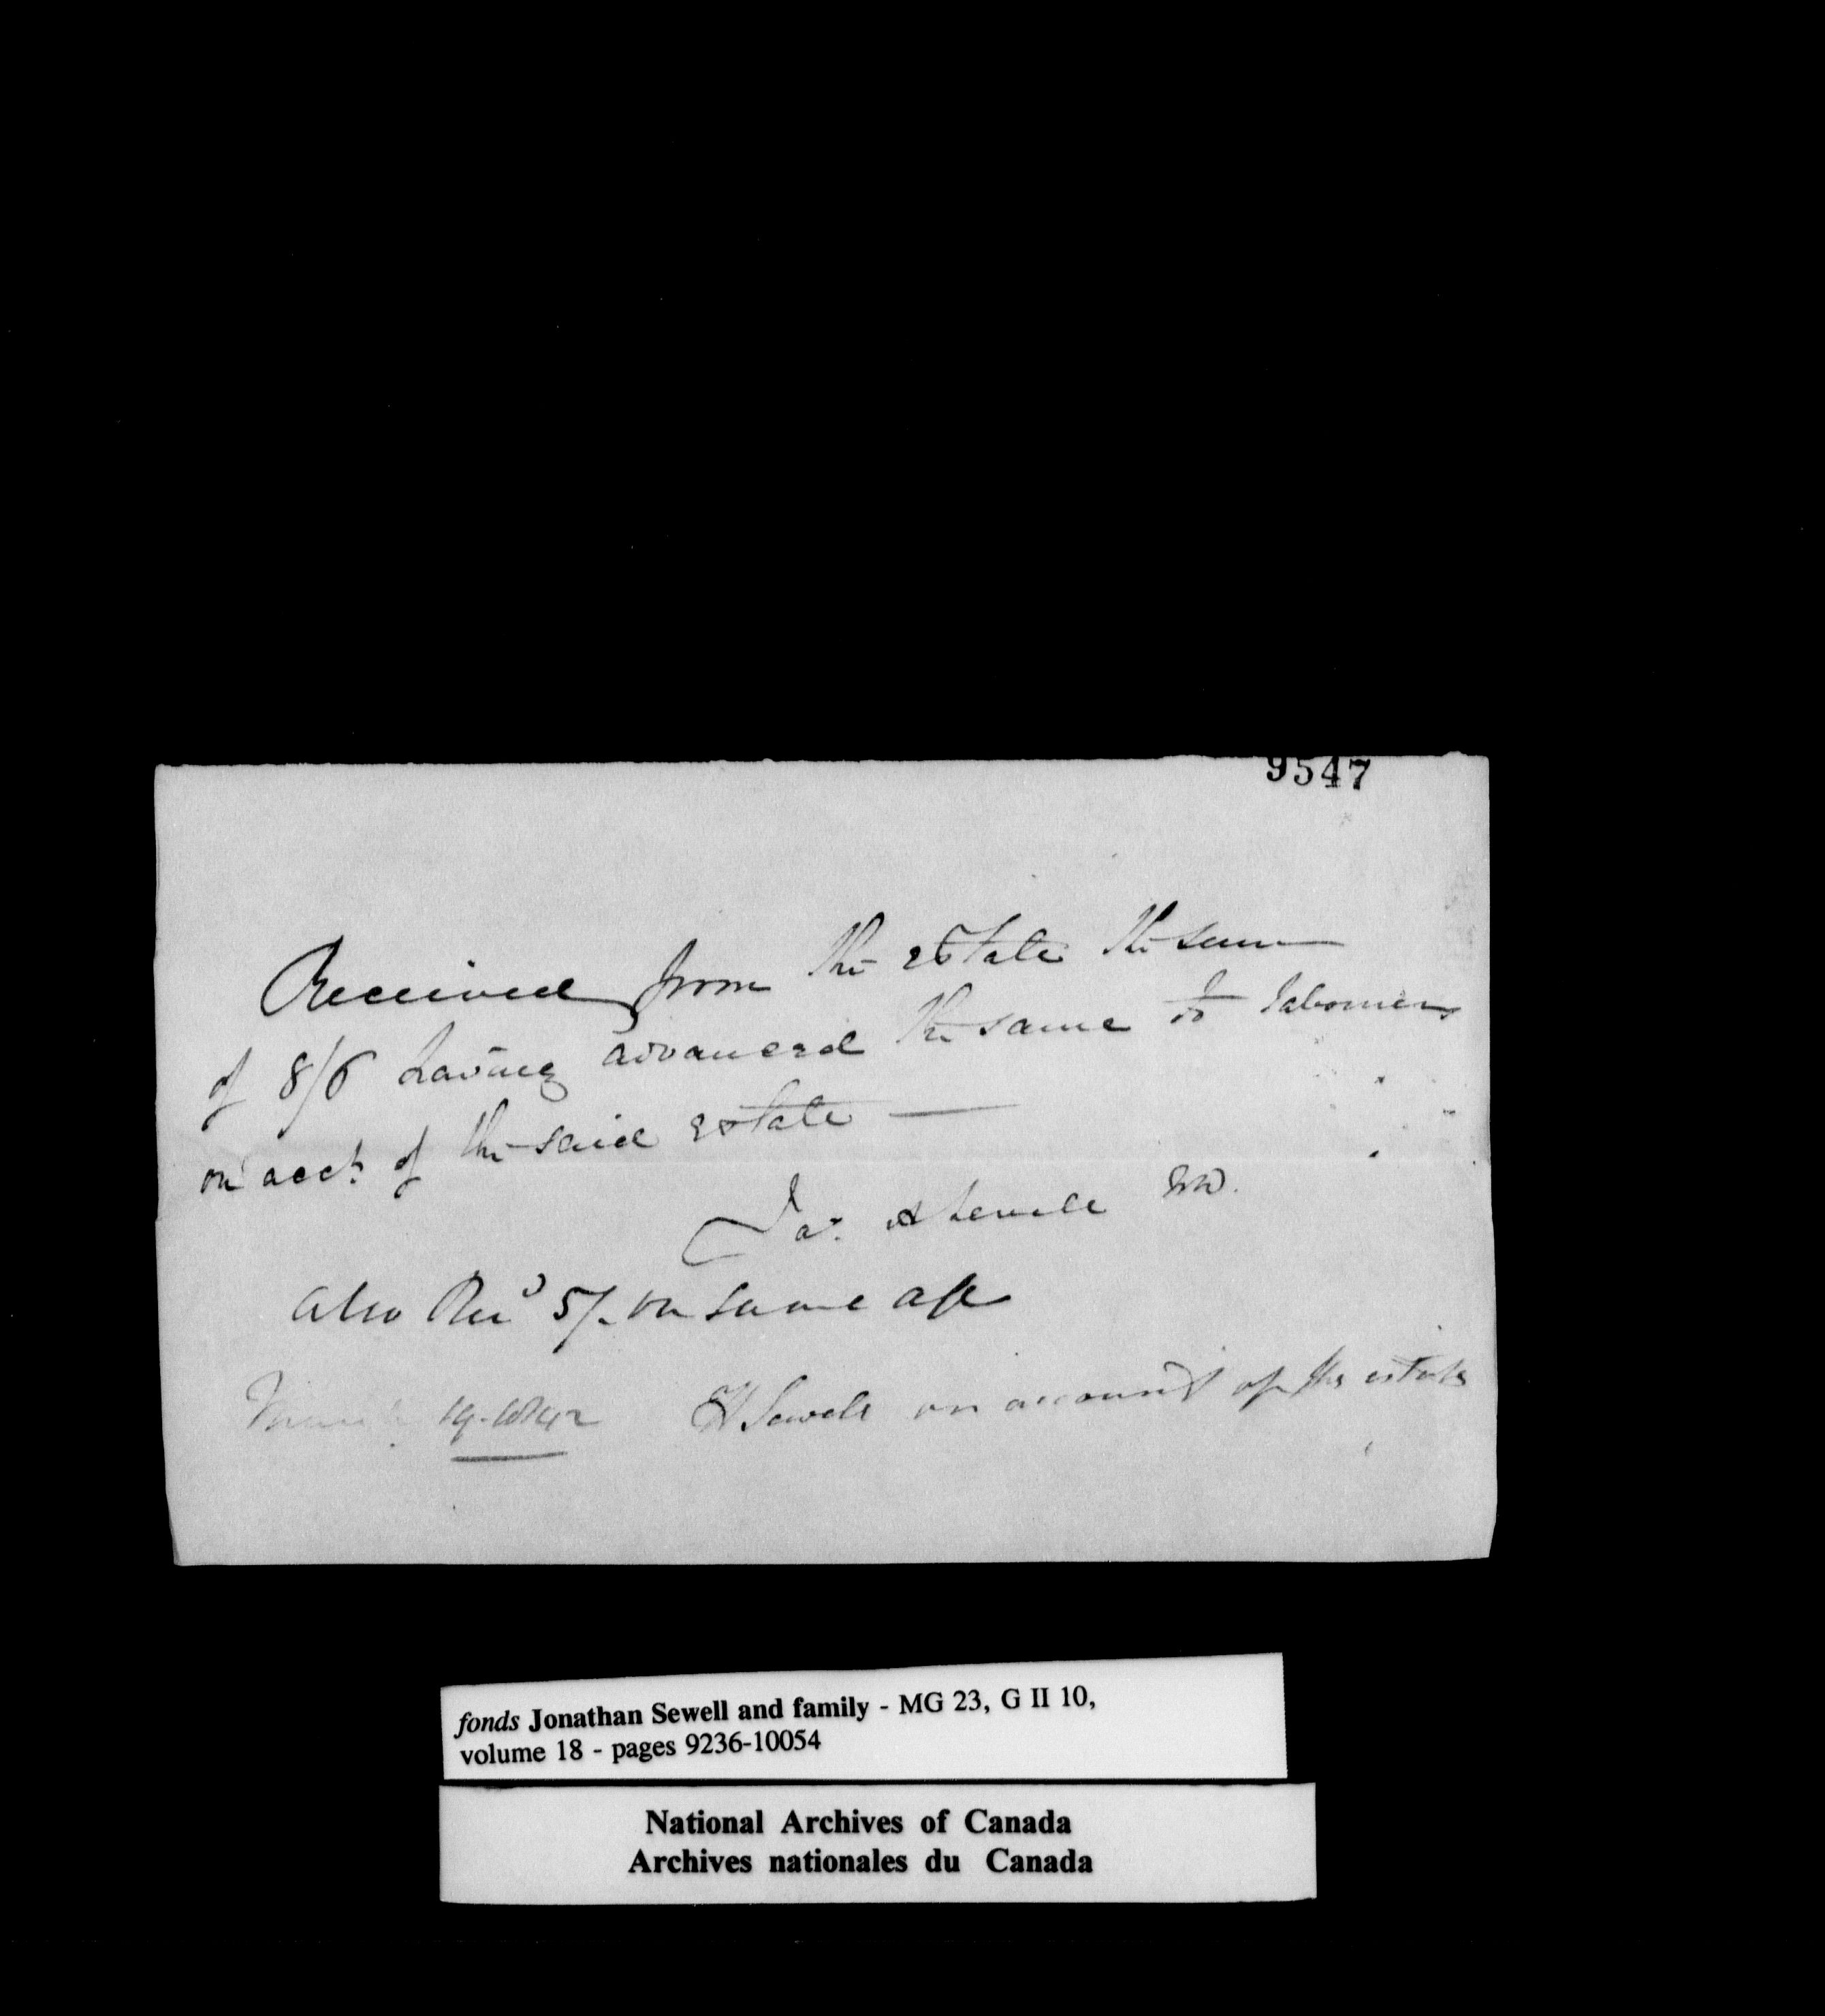 9547
Received from the estate the sum
of 8/6 having advanced the same to labourers
on acct. of the said estate —
Jas. A Sewell MD.
also Recd 5/- on same a/c
19. 1842 H Sewell on account of the estate
fonds Jonathan Sewell and family - MG 23, G II 10,
volume 18 - pages 9236-10054
National Archives of Canada
Archives nationales du Canada